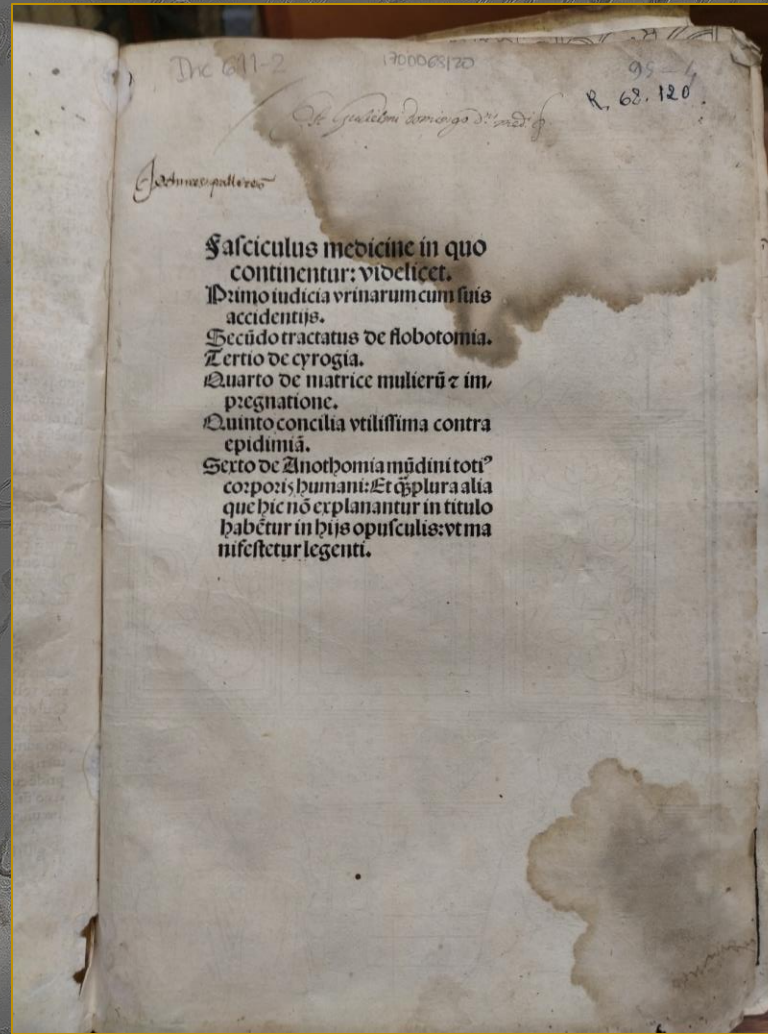 Inc 691-2
1700068120
95-4
R. 68.120.
Gulielmi domingo
Fasciculus medicine in quo
continentur: videlicet.
Primo iudicia vrinarum cum suis
accidentijs.
Secũdo tractatus de flobotomia.
Tertio de cyrogia.
Quarto de matrice mulierũ ⁊ im/
pregnatione.
Quinto concilia vtilissima contra
epidimiã.
Sexto de Anothomia mũdini totiꝰ
corporis humani: Et qꝫplura alia
que hic nõ explanantur in titulo
habẽtur in hijs opusculis: vt ma
nifestetur legenti.